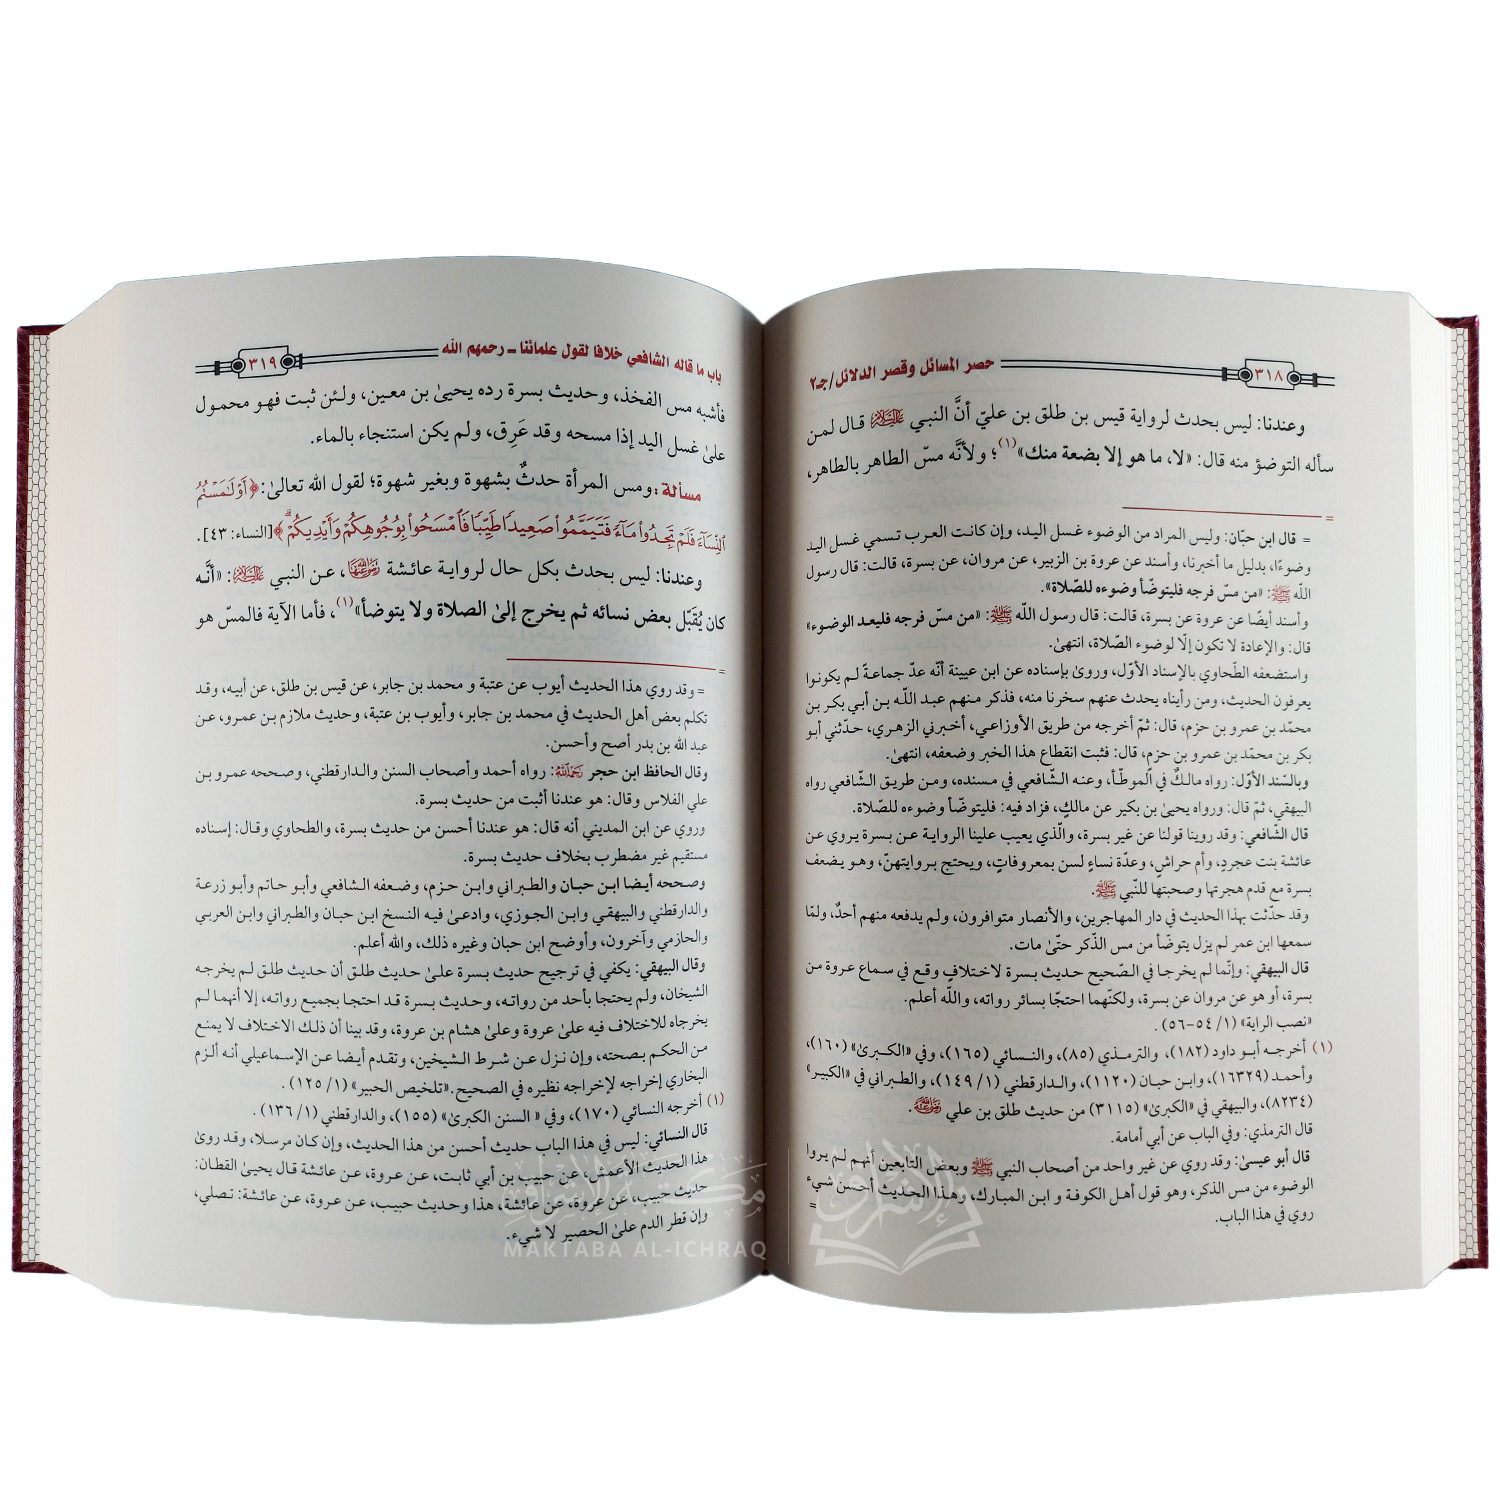 حصر المسائل وقصر الدلائل/جـ٢
٣١٨
وعندنا: ليس بحدث لرواية قيس بن طلق بن عليّ أنَّ النبي ﷺ قال لمن
سأله التوضؤ منه قال: «لا، ما هو إلا بضعة منك»(١)؛ ولأنَّه مسّ الطاهر بالطاهر،
= قال ابن حبّان: وليس المراد من الوضوء غسل اليد، وإن كانت العرب تسمي غسل اليد
وضوءًا، بدليل ما أخبرنا، وأسند عن عروة بن الزبير، عن مروان، عن بسرة، قالت: قال رسول
اللّه ﷺ: «من مسّ فرجه فليتوضّأ وضوءه للصّلاة».
وأسند أيضًا عن عروة عن بسرة، قالت: قال رسول اللّه ﷺ: «من مسّ فرجه فليعد الوضوء»
قال: والإعادة لا تكون إلّا لوضوء الصّلاة، انتهىٰ.
واستضعفه الطّحاوي بالإسناد الأوّل، وروىٰ بإسناده عن ابن عيينة أنّه عدّ جماعةً لم يكونوا
يعرفون الحديث، ومن رأيناه يحدث عنهم سخرنا منه، فذكر منهم عبد اللّه بن أبي بكر بن
محمّد بن عمرو بن حزم، قال: ثمّ أخرجه من طريق الأوزاعي، أخبرني الزهري، حدّثني أبو
بكر بن محمّد بن عمرو بن حزم، قال: فثبت انقطاع هذا الخبر وضعفه، انتهىٰ.
وبالسّند الأوّل: رواه مالكٌ في الموطّأ، وعنه الشّافعي في مسنده، ومن طريق الشّافعي رواه
البيهقي، ثمّ قال: ورواه يحيىٰ بن بكير عن مالكٍ، فزاد فيه: فليتوضّأ وضوءه للصّلاة.
قال الشّافعي: وقد روينا قولنا عن غير بسرة، والّذي يعيب علينا الرواية عن بسرة يروي عن
عائشة بنت عجردٍ، وأم حراشٍ، وعدّة نساءٍ لسن بمعروفاتٍ، ويحتج بروايتهنّ، وهو يضعف
بسرة مع قدم هجرتها وصحبتها للنّبي ﷺ.
وقد حدّثت بهذا الحديث في دار المهاجرين، والأنصار متوافرون، ولم يدفعه منهم أحدٌ، ولمّا
سمعها ابن عمر لم يزل يتوضّأ من مس الذّكر حتّىٰ مات.
قال البيهقي: وإنّما لم يخرجا في الصّحيح حديث بسرة لاختلافٍ وقع في سماع عروة من
بسرة، أو هو عن مروان عن بسرة، ولكنّهما احتجّا بسائر رواته، واللّه أعلم.
«نصب الراية» (١/ ٥٤-٥٦) .
(١) أخرجه أبو داود (١٨٢)، والترمذي (٨٥)، والنسائي (١٦٥)، وفي «الكبرىٰ» (١٦٠)،
وأحمد (١٦٣٢٩)، وابن حبان (١١٢٠)، والدارقطني (١/ ١٤٩)، والطبراني في «الكبير»
(٨٢٣٤)، والبيهقي في «الكبرىٰ» (٣١١٥) من حديث طلق بن علي رضي الله عنه.
قال الترمذي: وفي الباب عن أبي أمامة.
قال أبو عيسىٰ: وقد روي عن غير واحد من أصحاب النبي ﷺ وبعض التابعين أنهم لم يروا
الوضوء من مس الذكر، وهو قول أهل الكوفة و ابن المبارك، وهذا الحديث أحسن شيء
روي في هذا الباب. =
باب ما قاله الشافعي خلافا لقول علمائنا ــ رحمهم الله
٣١٩
فأشبه مس الفخذ، وحديث بسرة رده يحيىٰ بن معين، ولئن ثبت فهو محمول
علىٰ غسل اليد إذا مسحه وقد عَرِق، ولم يكن استنجاء بالماء.
مسألة: ومس المرأة حدثٌ بشهوة وبغير شهوة؛ لقول الله تعالىٰ: ﴿أَوۡ لَٰمَسۡتُمُ
ٱلنِّسَآءَ فَلَمۡ تَجِدُواْ مَآءٗ فَتَيَمَّمُواْ صَعِيدٗا طَيِّبٗا فَٱمۡسَحُواْ بِوُجُوهِكُمۡ وَأَيۡدِيكُمۡۗ﴾ [النساء: ٤٣].
وعندنا: ليس بحدث بكل حال لرواية عائشة رضي الله عنها، عن النبي ﷺ: «أنَّه
كان يُقَبّل بعض نسائه ثم يخرج إلىٰ الصلاة ولا يتوضأ»(١)، فأما الآية فالمسّ هو
=
= وقد روي هذا الحديث أيوب عن عتبة و محمد بن جابر، عن قيس بن طلق، عن أبيه، وقد
تكلم بعض أهل الحديث في محمد بن جابر، وأيوب بن عتبة، وحديث ملازم بن عمرو، عن
عبد الله بن بدر أصح وأحسن.
وقال الحافظ ابن حجر رحمه الله: رواه أحمد وأصحاب السنن والدارقطني، وصححه عمرو بن
علي الفلاس وقال: هو عندنا أثبت من حديث بسرة.
وروي عن ابن المديني أنه قال: هو عندنا أحسن من حديث بسرة، والطحاوي وقال: إسناده
مستقيم غير مضطرب بخلاف حديث بسرة.
وصححه أيضا ابن حبان والطبراني وابن حزم، وضعفه الشافعي وأبو حاتم وأبو زرعة
والدارقطني والبيهقي وابن الجوزي، وادعىٰ فيه النسخ ابن حبان والطبراني وابن العربي
والحازمي وآخرون، وأوضح ابن حبان وغيره ذلك، والله أعلم.
وقال البيهقي: يكفي في ترجيح حديث بسرة علىٰ حديث طلق أن حديث طلق لم يخرجه
الشيخان، ولم يحتجا بأحد من رواته، وحديث بسرة قد احتجا بجميع رواته، إلا أنهما لم
يخرجاه للاختلاف فيه علىٰ عروة وعلىٰ هشام بن عروة، وقد بينا أن ذلك الاختلاف لا يمنع
من الحكم بصحته، وإن نزل عن شرط الشيخين، وتقدم أيضا عن الإسماعيلي أنه ألزم
البخاري إخراجه لإخراجه نظيره في الصحيح.«تلخيص الحبير» (١/ ١٢٥) .
(١) أخرجه النسائي (١٧٠)، وفي « السنن الكبرىٰ» (١٥٥)، والدارقطني (١/ ١٣٦) .
قال النسائي: ليس في هذا الباب حديث أحسن من هذا الحديث، وإن كان مرسلا، وقد روىٰ
هذا الحديث الأعمش، عن حبيب بن أبي ثابت، عن عروة، عن عائشة قال يحيىٰ القطان:
حديث حبيب، عن عروة، عن عائشة، هذا وحديث حبيب، عن عروة، عن عائشة: تصلي،
وإن قطر الدم علىٰ الحصير لا شيء.
مكتبة الإشراق
MAKTABA AL-ICHRAQ
الإشراق